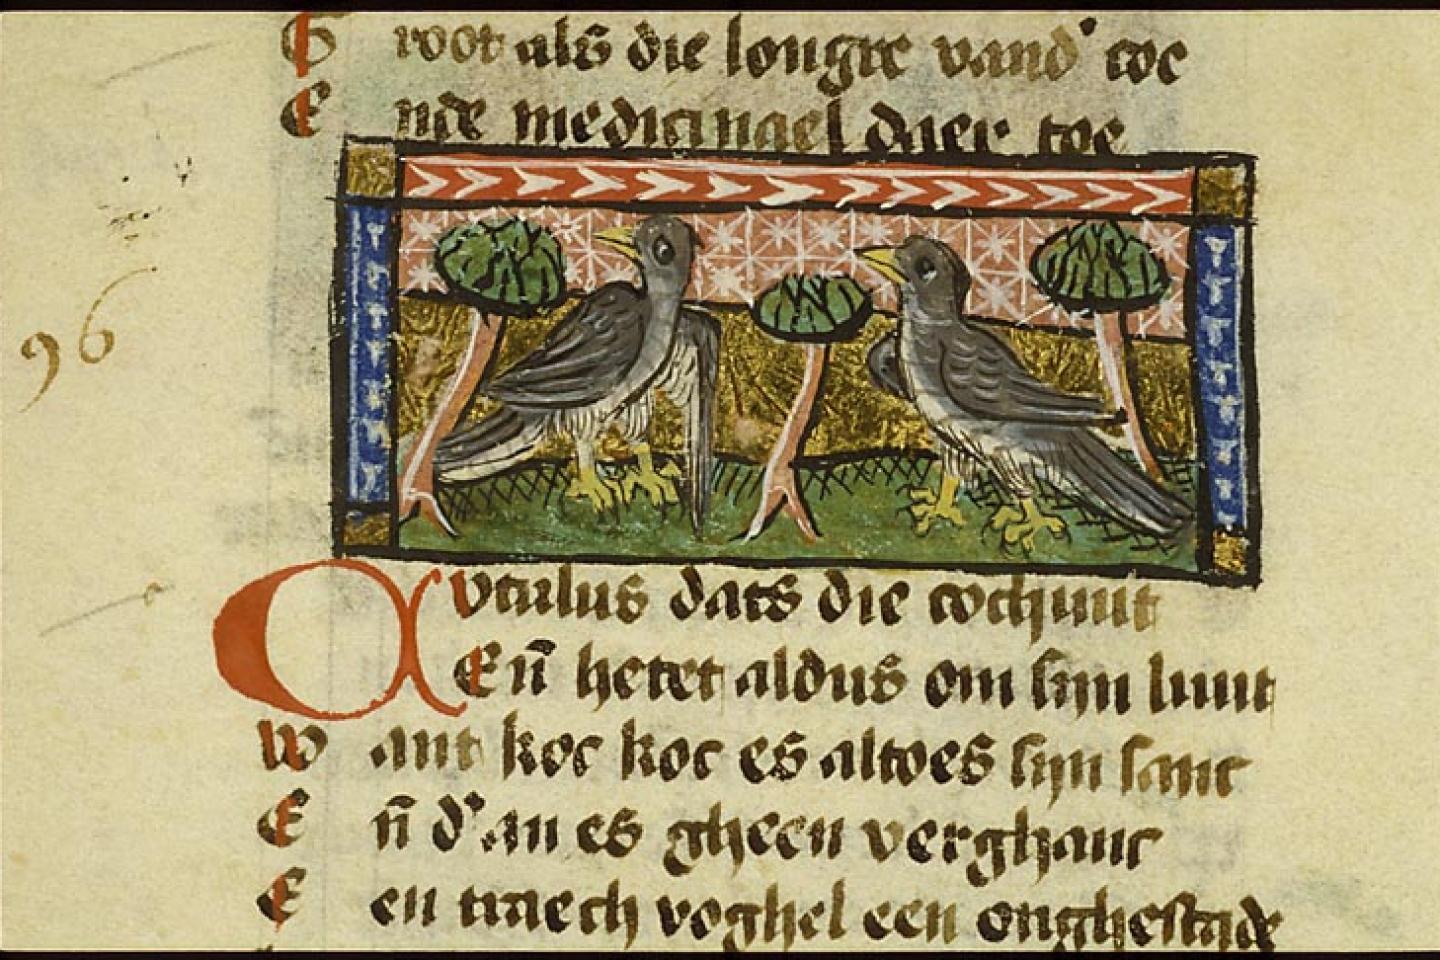 G root als die longre vand' toe
E nde medicinael daer toe
96
Cuculus dats die cochuut
Eñ hetet aldus om sijn luut
w ant koc koc es altoes sijn sanc
E ñ d'an es gheen verghanc
E en traech voghel een onghestade